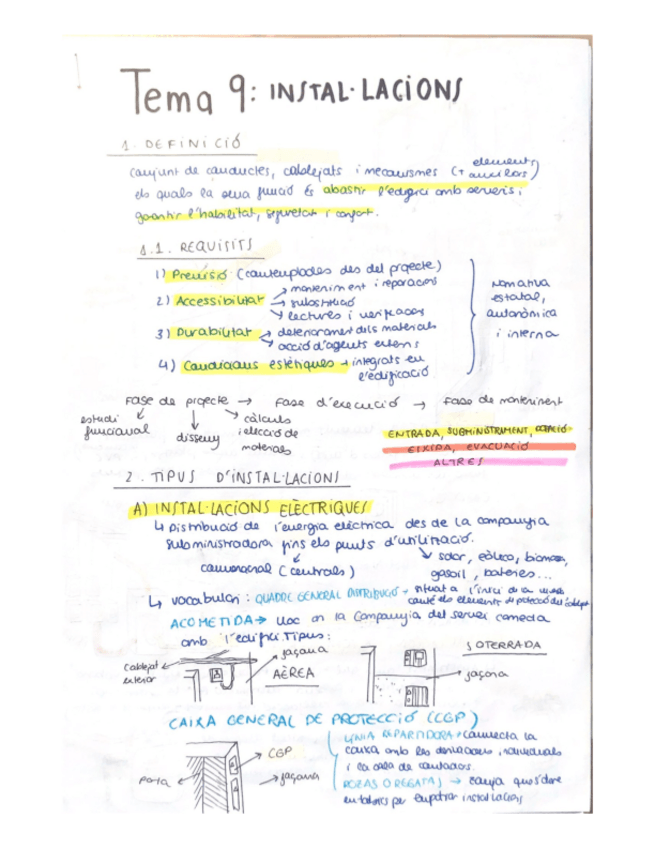 Tema 9: INSTAL·LACIONS
1. DEFINICIÓ
Conjunt de conductes, cablejats i mecanismes (+ elements auxiliars)
els quals la seua funció és abastir l'edifici amb serveis i
garantir l'habilitat, seguretat i confort.
1.1. REQUISITS
1) Previsió (contemplades des del projecte)
2) Accessibilitat → manteniment i reparacions
→ substitució
→ lectures i verificacions
3) Durabilitat → deteriorament dels materials
→ acció d'agents externs
4) Condicions estètiques → integrats en
l'edificació
Normativa
estatal,
autonòmica
i interna
Fase de projecte → Fase d'execució → Fase de manteniment
estudi
funcional
disseny
càlculs
i elecció de
materials
ENTRADA, SUBMINISTRAMENT,
EIXIDA, EVACUACIÓ
ALTRES
2. TIPUS D'INSTAL·LACIONS
A) INSTAL·LACIONS ELÈCTRIQUES
↳ Distribució de l'energia elèctrica des de la companyia
subministradora fins els punts d'utilització.
convencional (centrals)
solar, eòlica, biomassa,
gasoil, bateries...
↳ vocabulari: QUADRE GENERAL DISTRIBUCIÓ → situat a l'inici de la
conté els elements de protecció del
ACOMETIDA → lloc on la companyia del servei connecta
amb l'edifici. Tipus:
Cablejat
exterior
façana
AÈREA
SOTERRADA
façana
CAIXA GENERAL DE PROTECCIÓ (CGP)
CGP
Porta
façana
LÍNIA REPARTIDORA → connecta la
caixa amb les derivacions individuals
i la sala de comptadors.
ROZAS O REGATAS → canja que s'obre
en tabics per empotrar instal·lacions